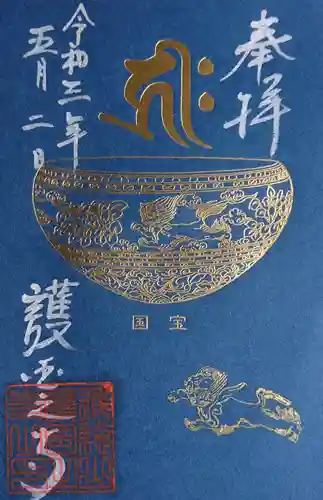 奉拝
令和三年
五月二日
国宝
護国之寺